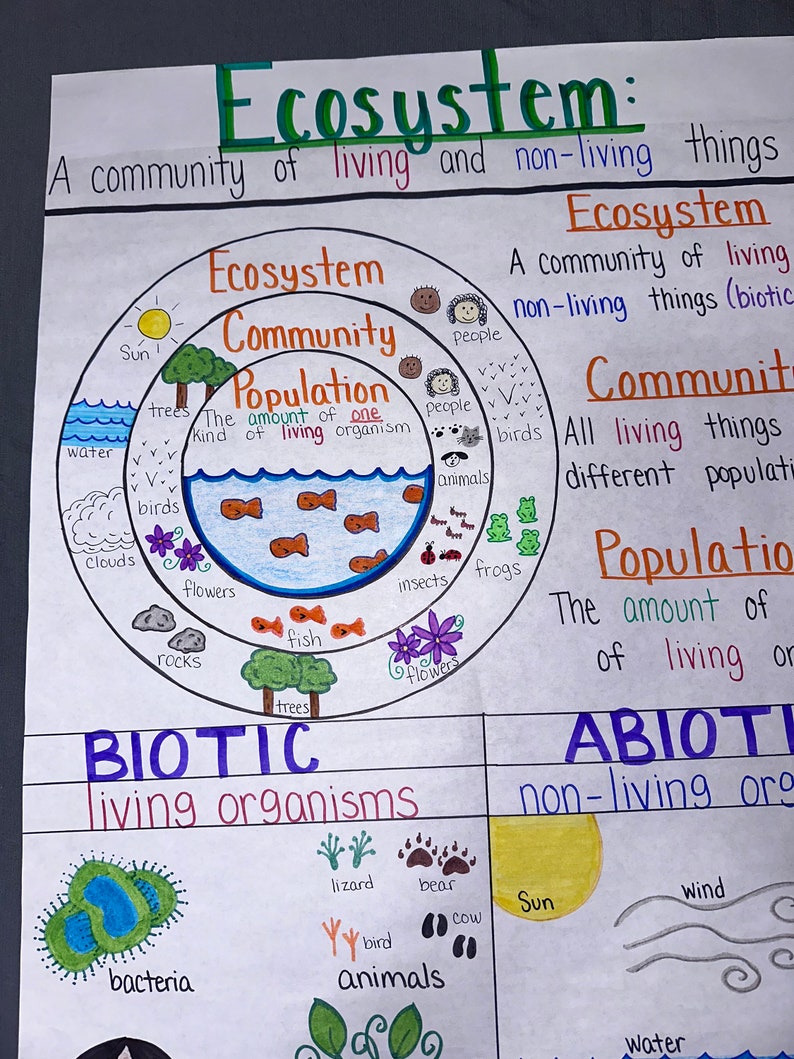 Ecosystem:
A community of living and non-living things
Ecosystem
A community of living
non-living things (biotic
Community
All living things
different populati
Population
The amount of
of living or
Ecosystem
Sun
people
Community
trees
people
birds
water
Population
The amount of one
kind of living organism
animals
birds
clouds
flowers
insects
frogs
fish
rocks
flowers
trees
BIOTIC
living organisms
bacteria
lizard
bear
bird
cow
animals
ABIOTI
non-living org
Sun
wind
water